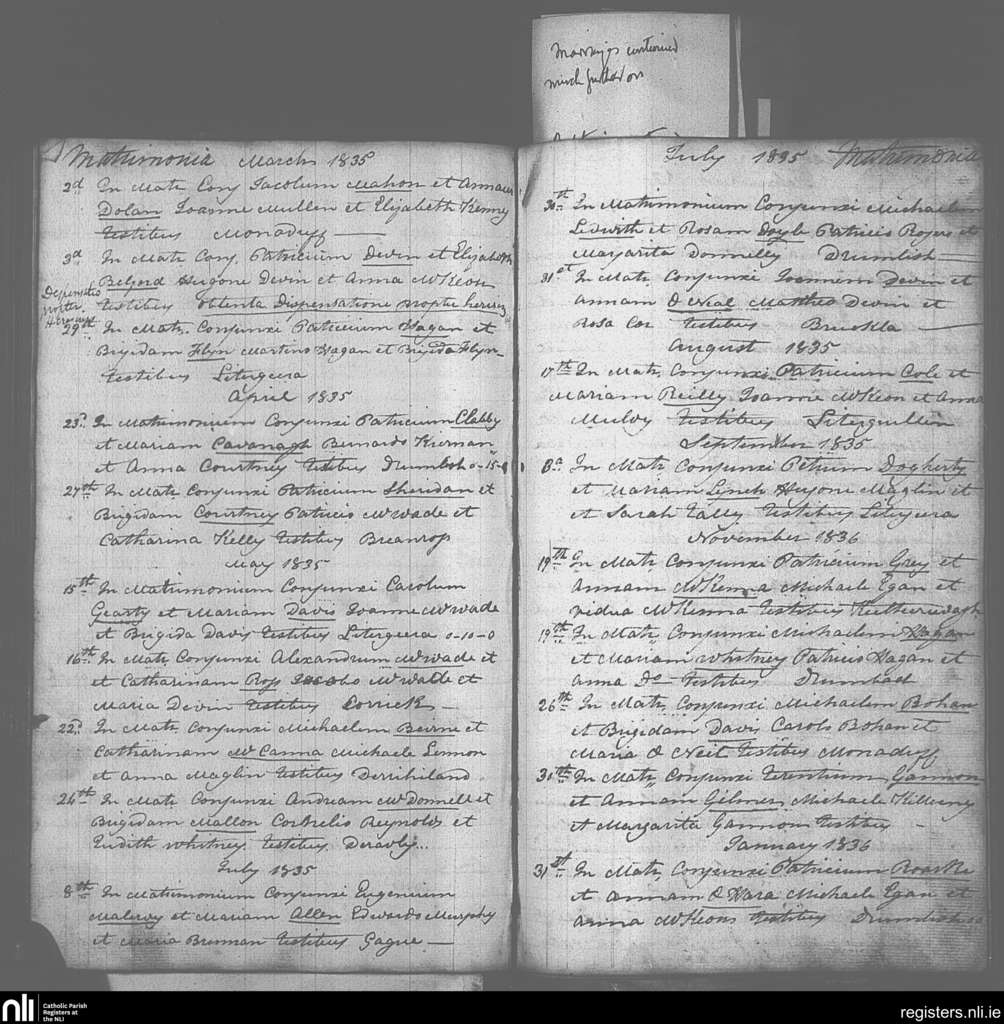 Marriages continued
much further on
Matrimonia March 1835
2d In Mat: Conj Jacobum Mahon et Annam
Dolan Joanne Mullen et Elizabeth Kenny
Testibus Monaduff
3d In Mat: Conj. Patricium Devin et Elizabeth
Belford Hugone Devin et Anna McKeon
Testibus obtenta Dispensatione propter heresim
Dispensatio
propter
29th In Mat: Conjunxi Patricium Hagan et
Brigidam Flyn Martino Hagan et Brigida Flyn
Testibus Litergeera
April 1835
23d In Matrimonium Conjunxi Patricium Clabby
et Mariam Cavanagh Bernardo Kiernan
et Anna Courtney Testibus Drumlish 0-15-
27th In Mat: Conjunxi Patricium Sheridan et
Brigidam Courtney Patricio McWade et
Catharina Kelly Testibus Breanrop
May 1835
15th In Matrimonium Conjunxi Carolum
Gearty et Mariam Davis Joanne McWade
et Brigida Davis Testibus Litergeera 0-10-0
16th In Mat: Conjunxi Alexandrum McWade et
et Catharinam Ross Jacobo McWade et
Maria Devin Testibus Corrick
22d In Mat: Conjunxi Michaelem Beirne et
Catharinam McCanna Michaele Lennon
et Anna Maglin Testibus Derrihiland
26th In Mat: Conjunxi Andream McDonnell et
Brigidam Mallon Cornelio Reynolds et
Judith Whitney Testibus
July 1835
8th In Matrimonium Conjunxi Eugenium
et Mariam Allen Edwardo Murphy
et Maria Brennan Testibus Gague
July 1835 Matrimonia
30th In Matrimonium Conjunxi Michaelem
Ledwith et Rosam Doyle Patricio Rogers et
Margarita Donnelly Drumlish
31st In Mat: Conjunxi Joannem Devin et
Annam O Neal Mattheo Devin et
Rosa Cox Testibus
August 1835
17th In Mat: Conjunxi Patricium Cole et
Mariam Reilly Joanne McKeon et Anna
Mulvy Testibus Litergullin
September 1835
8a In Mat: Conjunxi Petrum Dogherty
et Mariam Lynch Hugone Maglin et
et Sarah Tally Testibus Litergeera
November 1836
19th In Mat: Conjunxi Patricium Grey et
Annam McKenna Michaele Egan et
vidua McKenna Testibus
19th In Mat: Conjunxi Michaelem Hagan
et Mariam Whitney Patricio Hagan et
Anna Do Testibus Drumbad
26th In Mat: Conjunxi Michaelem Bohan
et Brigidam Davis Carolo Bohan et
Maria O Neil Testibus Monaduff
30th In Mat: Conjunxi Terentium Gannon
et Annam Gilmer, Michaele
et Margarita Gannon Testibus
January 1836
31st In Mat: Conjunxi Patricium Roark
et Annam O Hara Michaele Egan et
Anna McKeon Testibus Drumlish
nli
Catholic Parish
Registers at
the NLI
registers.nli.ie